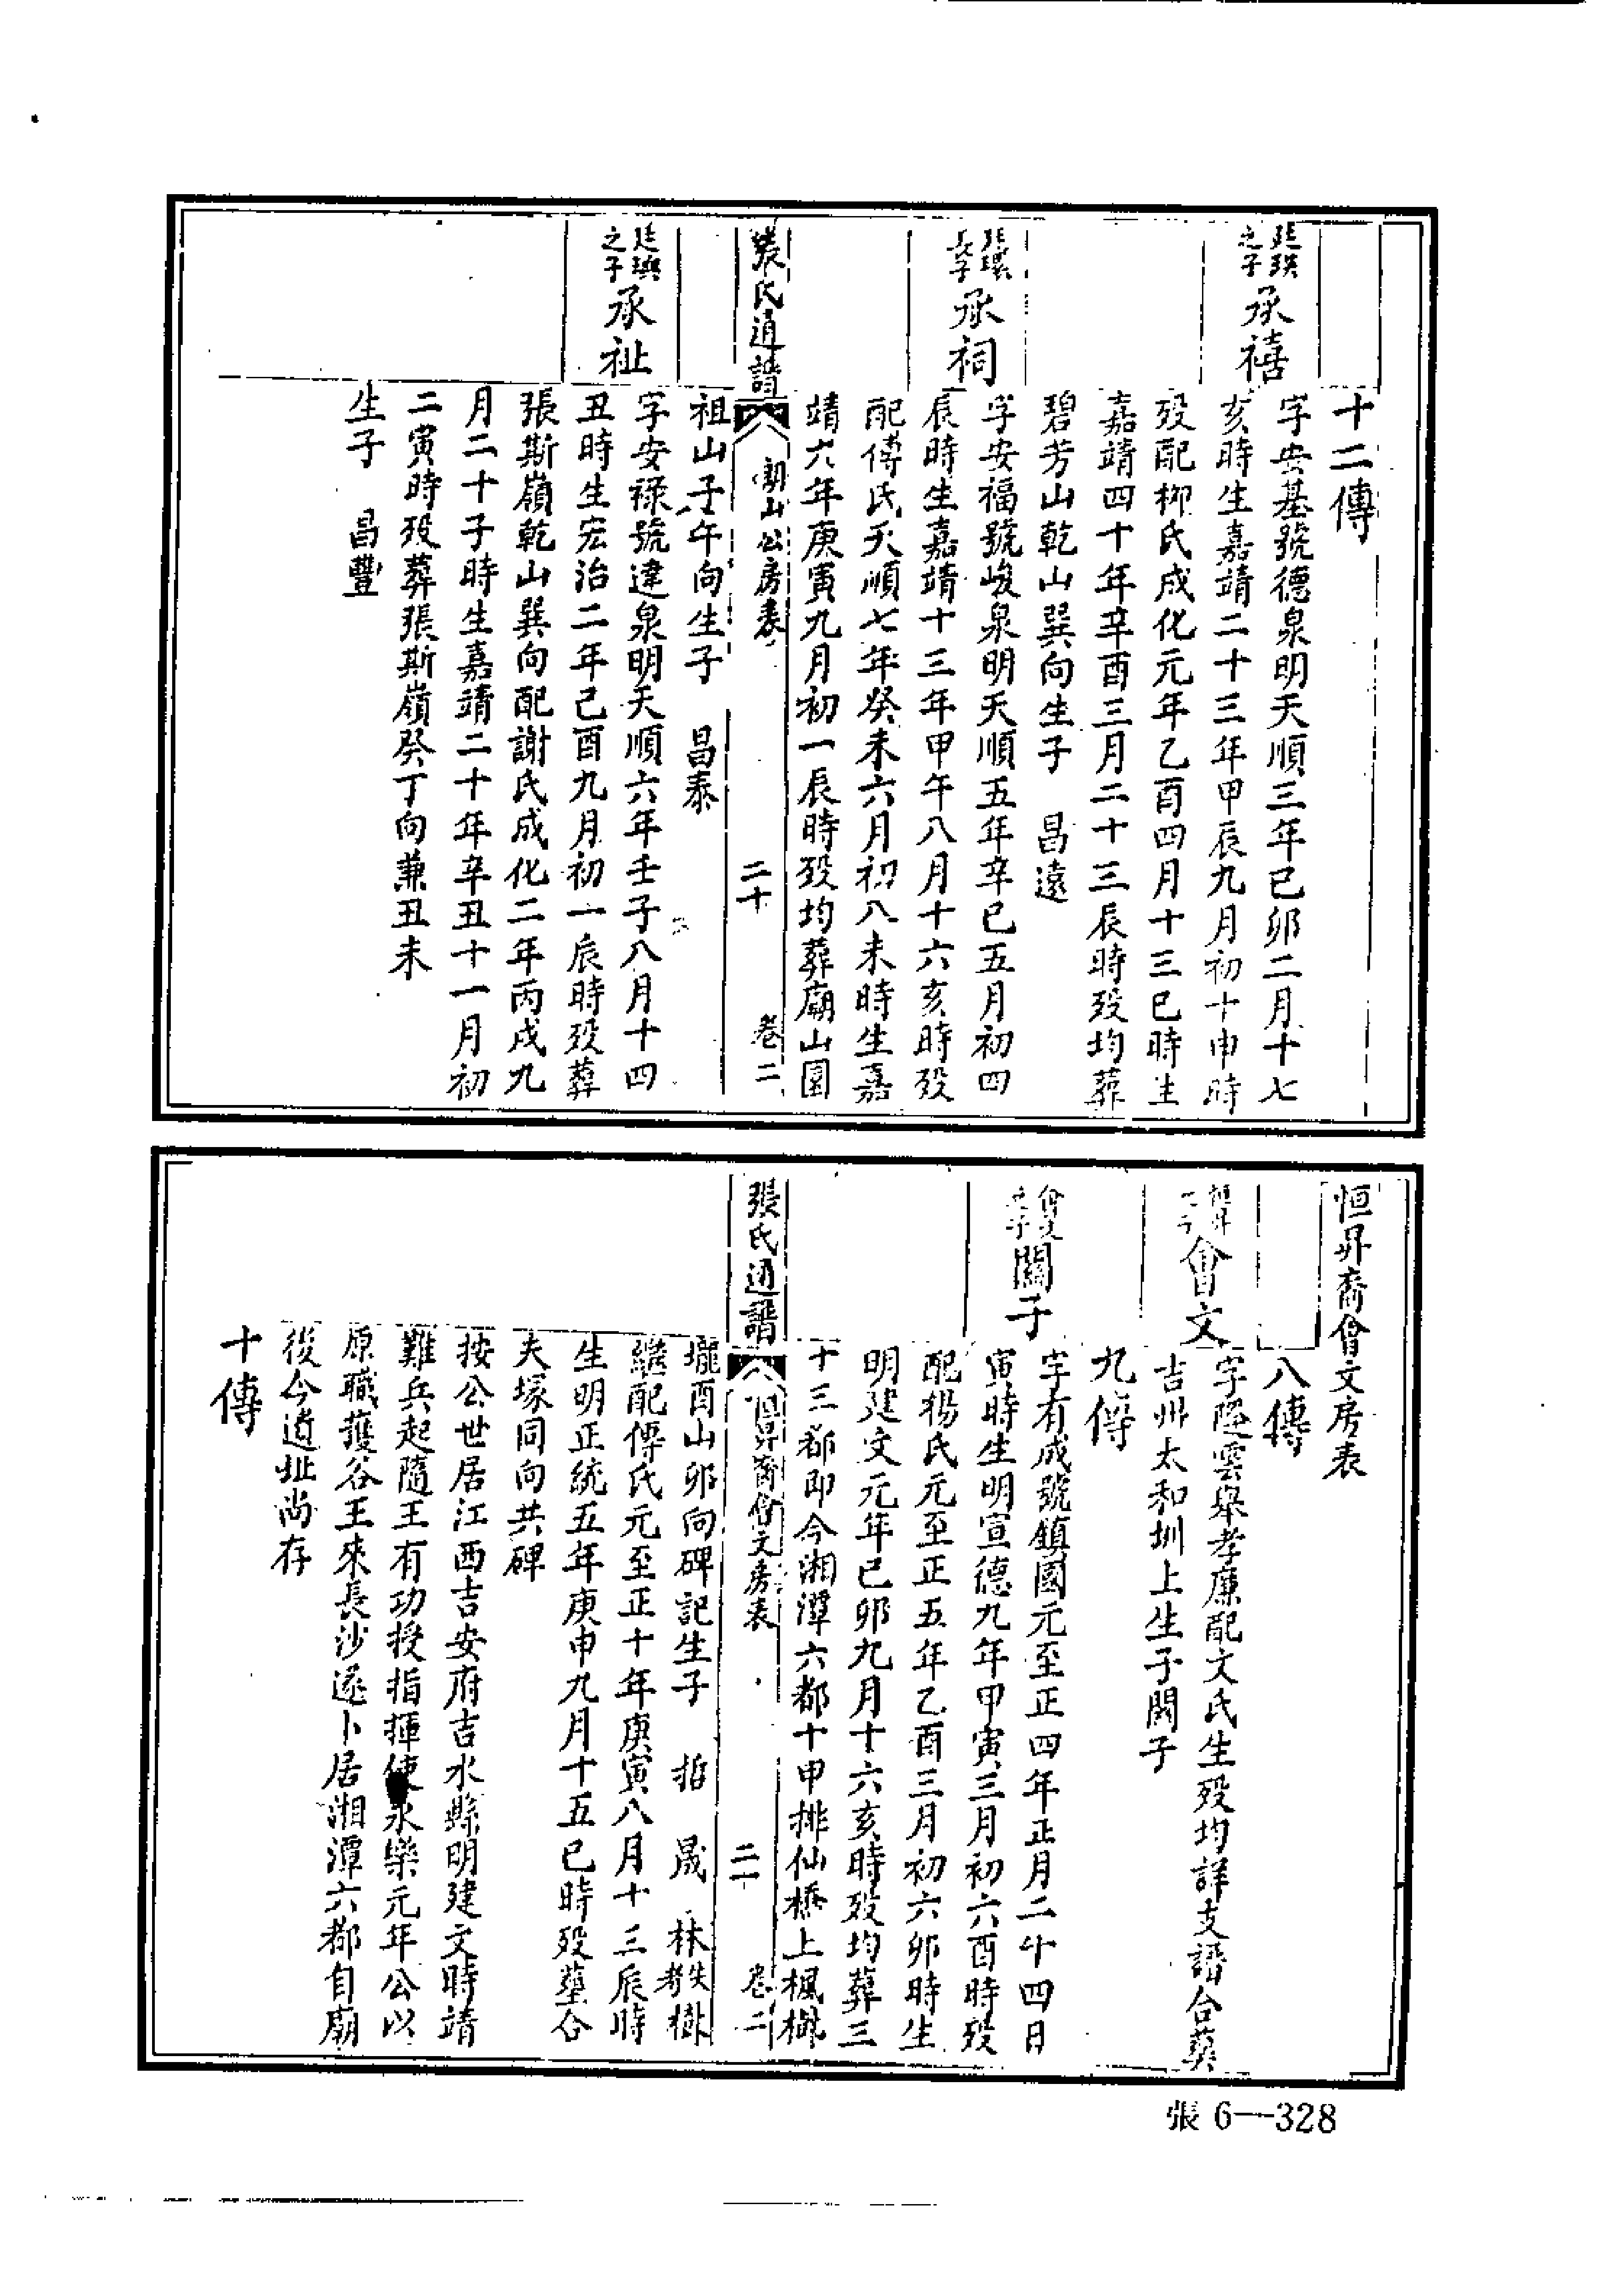 十二傳
廷珙之子 承禧
字安基號德泉明天順三年己卯二月十七
亥時生嘉靖二十三年甲辰九月初十申時
歿配柳氏成化元年乙酉四月十三巳時生
嘉靖四十年辛酉三月二十三辰時歿均葬
碧芳山乾山巽向生子 昌遠
長子 承祠
字安福號峻泉明天順五年辛巳五月初四
辰時生嘉靖十三年甲午八月十六亥時歿
配傅氏天順七年癸未六月初八未時生嘉
靖六年庚寅九月初一辰時歿均葬廟山園
張氏通譜 山公房表 二十 卷二
祖山子午向生子 昌泰
之子 承祉
字安祿號達泉明天順六年壬子八月十四
丑時生宏治二年己酉九月初一辰時歿葬
張斯嶺乾山巽向配謝氏成化二年丙戌九
月二十子時生嘉靖二十年辛丑十一月初
二寅時歿葬張斯嶺癸丁向兼丑未
生子 昌豐
恒昇裔會文房表
八傳
會文
字際雲舉孝廉配文氏生歿均詳支譜合葬
吉州太和圳上生子闗子
九傳
會文之子 闗子
字有成號鎮國元至正四年正月二十四日
寅時生明宣德九年甲寅三月初六酉時歿
配楊氏元至正五年乙酉三月初六卯時生
明建文元年己卯九月十六亥時歿均葬三
十三都即今湘潭六都十甲排仙橋上楓樹
張氏通譜 恒昇裔會文房表 二一 卷二
壠酉山卯向碑記生子 晟 林失考 樹
繼配傅氏元至正十年庚寅八月十三辰時
生明正統五年庚申九月十五巳時歿墓合
夫塚同向共碑
按公世居江西吉安府吉水縣明建文時靖
難兵起隨王有功授指揮使永樂元年公以
原職護谷王來長沙遂卜居湘潭六都自廟
後今遺址尚存
十傳
張 6—328